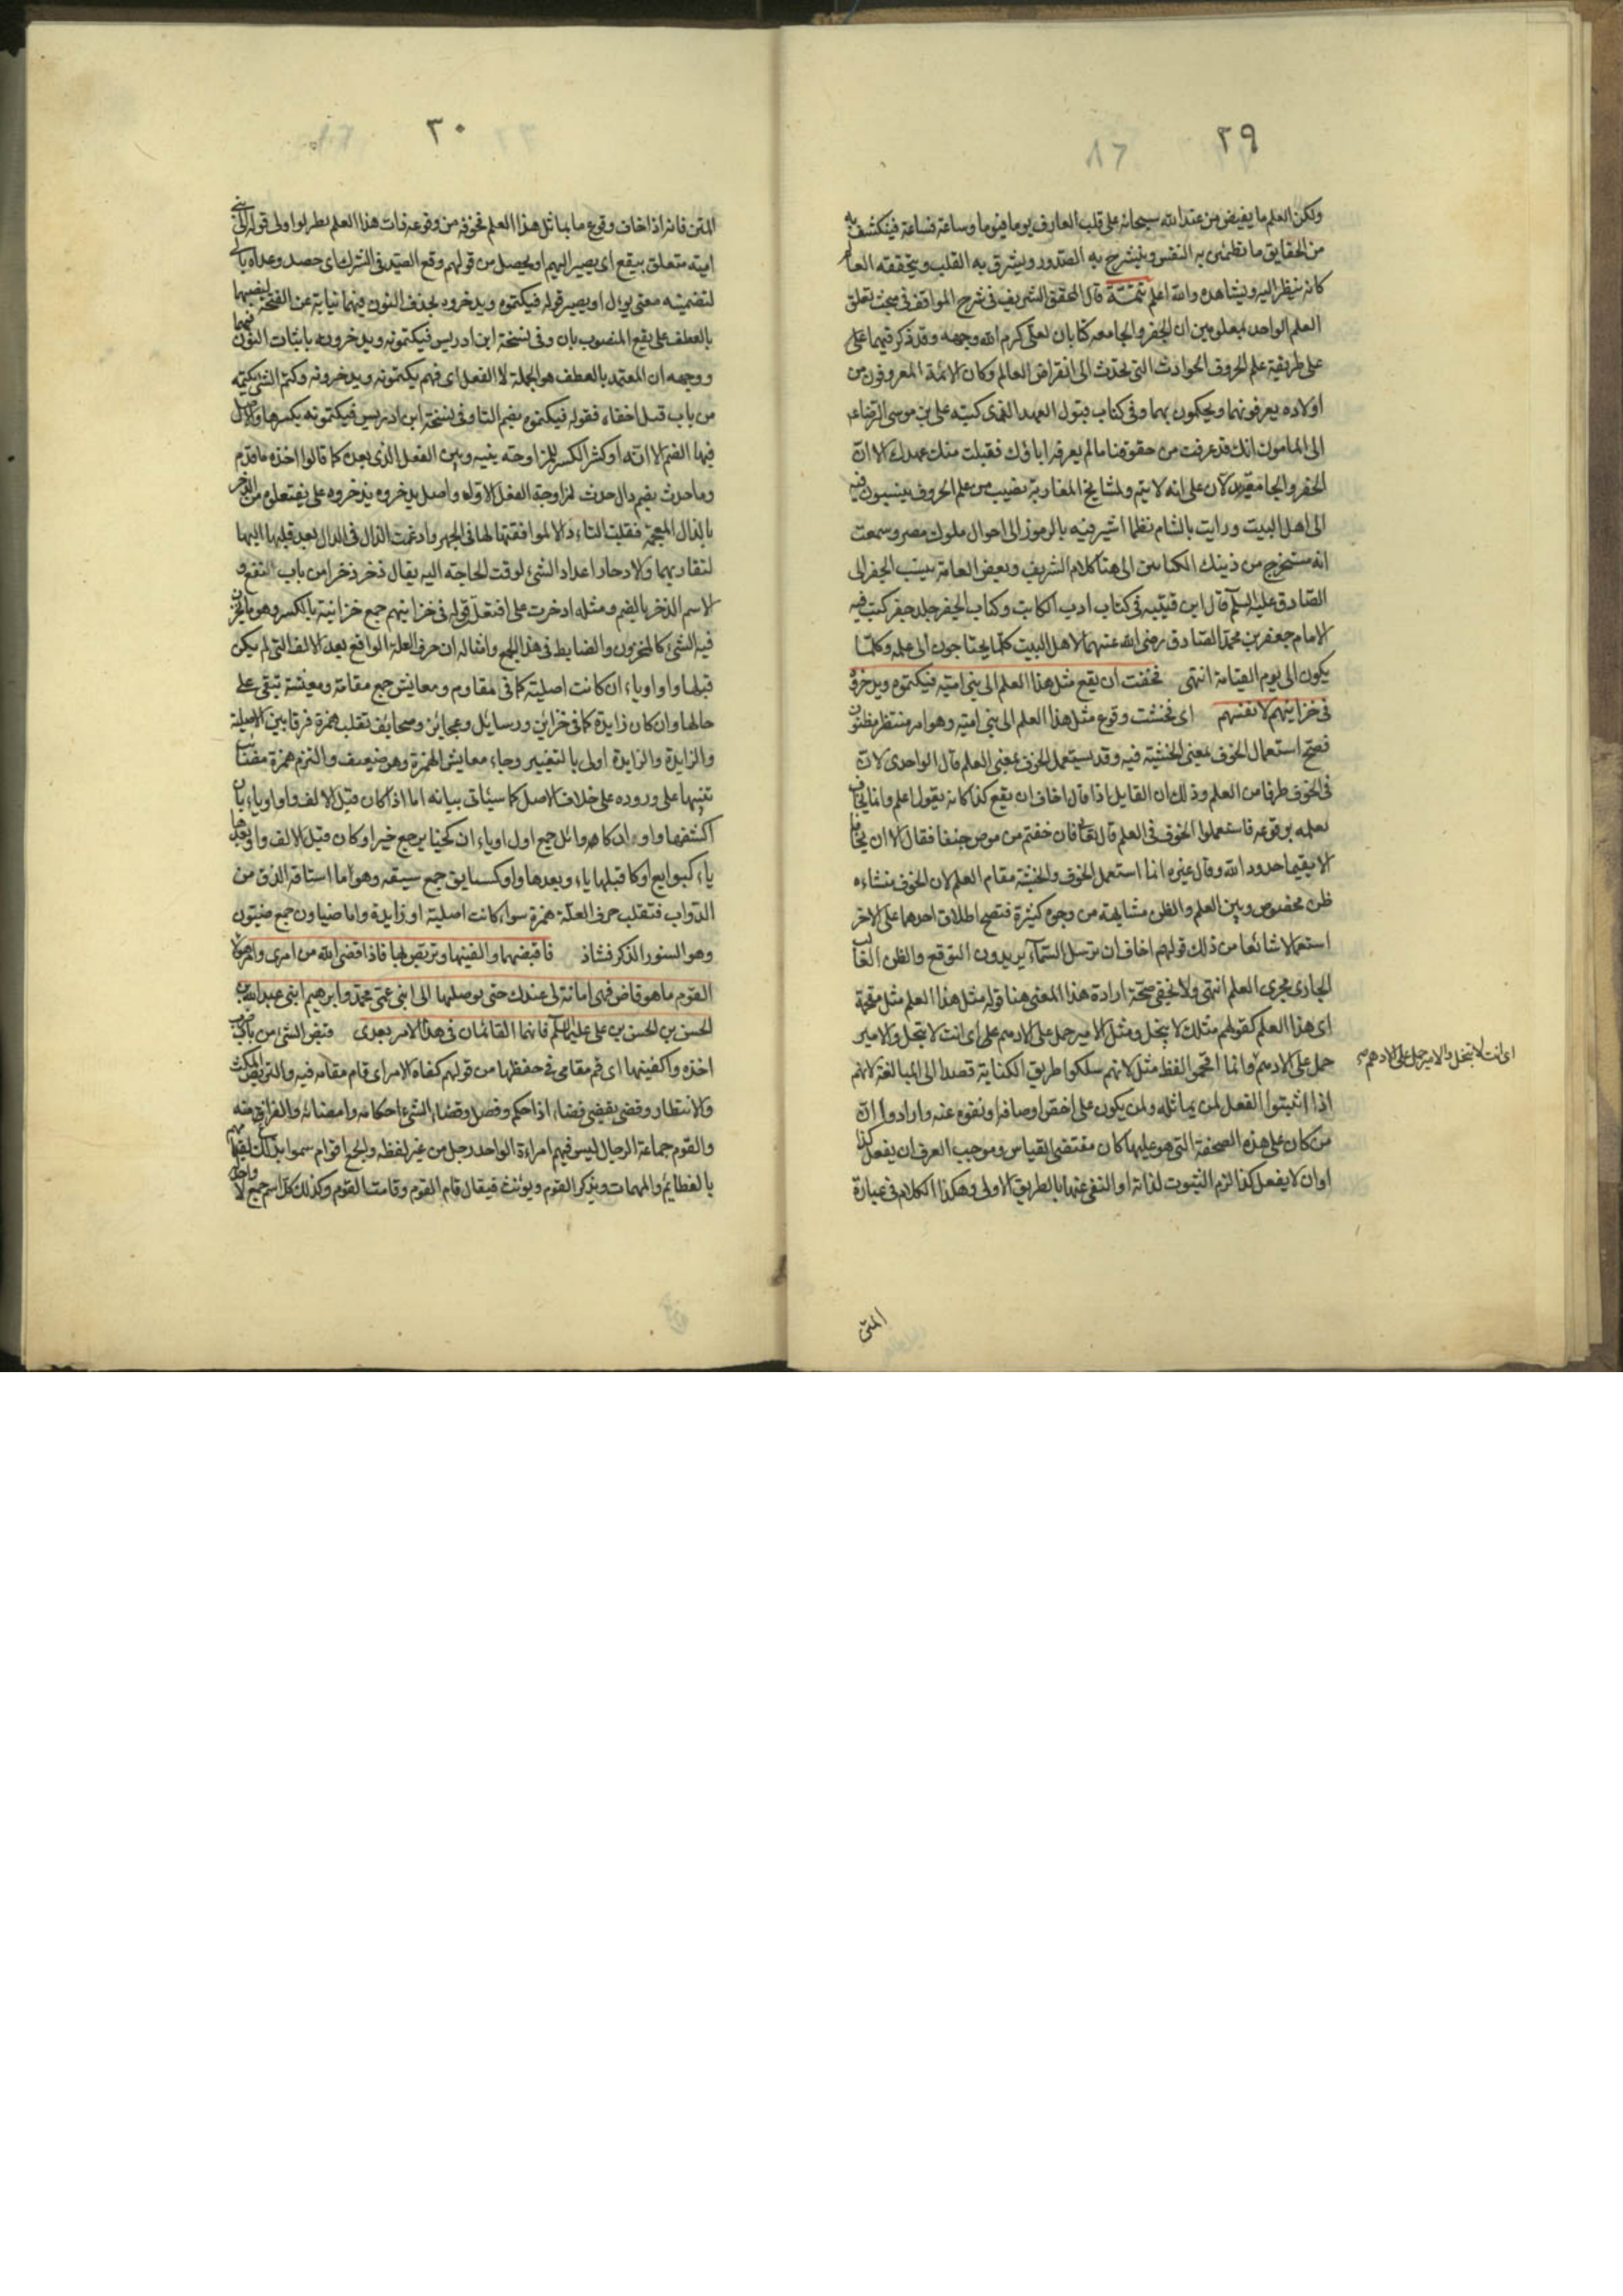 ٢٩
ولكن العلم ما يفيض من عند الله سبحانه على قلب العارف يوما فيوما وساعة فساعة فينكشف به
من الحقايق ما تطمئن به النفس وينشرح به الصدور ويشرق به القلب ويتحققه العالم
كانه ينظر اليه ويشاهده والله اعلم تتمة قال المحقق الشريف فى شرح المواقف فى مبحث تعلق
العلم الواحد بمعلومين ان الجفر والجامعه كتابان لعلى كرم الله وجهه وقد ذكر فيهما على
على طريقة علم الحروف الحوادث التى تحدث الى انقراض العالم وكان الائمة المعروفون من
اولاده يعرفونهما ويحكمون بهما وفى كتاب قبول العهد الذى كتبه على بن موسى الرضا ع
الى المامون انك قد عرفت من حقوقنا ما لم يعرفه اباؤك فقبلت منك عهدك الا ان
الجفر والجامعة يدلان على انه لا يتم ولمشايخ المغاربة نصيب من علم الحروف ينسبون فيه
الى اهل البيت ورايت بالشام نظما اشير فيه بالرموز الى احوال ملوك مصر وسمعت
انه مستخرج من ذينك الكتابين الى هنا كلام الشريف وبعض العامة ينسب الجفر الى
الصادق عليه السلم قال ابن قتيبه فى كتاب ادب الكاتب وكتاب الجفر جلد جفر كتب فيه
الامام جعفر بن محمد الصادق رضى الله عنهما لاهل البيت كلما يحتاجون الى علمه وكلما
يكون الى يوم القيامة انتهى فخفت ان يقع مثل هذا العلم الى بنى امية فيكتموه ويدخروه
فى خزاينهم لانفسهم اى فخشت وقوع مثل هذا العلم الى بنى اميه وهو امر منتظر مظنون
فصح استعمال الخوف بمعنى الخشية فيه وقد يستعمل الخوف بمعنى العلم قال الواحدى لان
فى الخوف طرفا من العلم وذلك ان القايل اذا قال اخاف ان يقع كذا كانه يقول اعلم وانما يخاف
لعلمه بوقوعه فاستعملوا الخوف فى العلم قال تعالى فان خفتم من موص جنفا فقال الا ان يخافا
الا يقيما حدود الله وقال غيره انما استعمل الخوف والخشية مقام العلم لان الخوف منشاءه
ظن مخصوص وبين العلم والظن مشابهة من وجوه كثيرة فتصح اطلاق احدهما على الاخر
استعمالا شائعا من ذلك قولهم اخاف ان ترسل السماء يريدون التوقع والظن الغالب
الجارى مجرى العلم انتهى ولا يخفى صحة ارادة هذا المعنى هنا قوله مثل هذا العلم مثل مقحمة
اى هذا العلم كقولهم مثلك لا يبخل ومثل الامير حمل على الادهم على اى انت لا تبخل والامير
حمل على الادهم وانما اقحموا لفظ مثل لانهم سلكوا طريق الكناية قصدا الى المبالغة لانهم
اذا اثبتوا الفعل لمن يماثله ولمن يكون على اخص اوصافه او نفوه عنه وارادوا ان
من كان على هذه الصفة التى هو عليها كان مقتضى القياس وموجب العرف ان يفعل كذا
او ان لا يفعل كذا لزم الثبوت لذاته او النفى عنها بالطريق الاولى وهكذا الكلام فى عبارة
اى انت لا تبخل والامير حمل على الادهم
المتن
٣٠
المتن فانه اذا خاف وقوع ما يماثل هذا العلم فخوفه من وقوعه ذات هذا العلم بطريق اولى قوله الى بنى
اميه متعلق بيقع اى يصير اليهم او يحصل من قولهم وقع الصيد فى الشرك اى حصل وعداه بالى
لتضمينه معنى يؤل او يصير قوله فيكتموه ويدخروه بحذف النون فيهما نيابة عن الفتحة لنصبهما
بالعطف على يقع المنصوب بان وفى نسخة ابن ادريس فيكتمونه ويدخرونه باثبات النون فيهما
ووجهه ان المعتمد بالعطف هو الجملة لا الفعل اى فهم يكتمونه ويدخرونه وكتم الشئ يكتمه
من باب قبل اخفاه فقوله فيكتموه بضم التا وفى نسخة ابن ادريس فيكتمونه بكسرها والاصل
فيها الضم الا انه اوكثر الكسر للمزاوجة بينه وبين الفعل الذى بعده كما قالوا اخذه ما قدم
وما حدث بضم دال حدث لمزاوجة الفعل الاول واصل يدخروه يذتخروه على يفتعلوه من الذخر
بالذال المعجمة فقلبت التاء دالا لموافقتها لها فى الجهر وادغمت الذال فى الدال بعد قلبها اليها
لتقاربهما والادخار اعداد الشئ لوقت الحاجة اليه يقال ذخر ذخرا من باب نفع و
الاسم الذخر بالضم ومثله ادخرت على افتعل قوله فى خزاينهم جمع خزانة بالكسر وهو ما يخزن
فيه الشئ كالمخزن والضابط فى هذا الجمع وامثاله ان حرف العلة الواقع بعد الالف التى لم يكن
قبلها واو او ياء ان كانت اصلية كما فى مقاوم ومعايش جمع مقامة ومعيشة تبقى على
حالها وان كان زايدة كما فى خزاين ورسايل وعجائز وصحايف تقلب همزة فرقا بين الاصلية
والزايدة والزايدة اولى بالتغيير وجاء معايش بالهمزة وهو ضعيف والتزم همزة مصائب
تنبيها على وروده على خلاف الاصل كما سيئاتى بيانه اما اذا كان قبل الالف واو او ياء بان
اكتنفها واوان كاوائل جمع اول او ياءان كخياير جمع خير او كان قبل الالف واو وبعدها
ياء كبوايع او كا قبلها ياء وبعدها واو كسيايق جمع سيقه وهو ما استاقه العدو من
الدواب فتقلب حرف العلة همزة سواء كانت اصلية او زايدة واما ضياون جمع ضيون
وهو السنور الذكر فشاذ فاقبضها واكفنيها وتربص بها فاذا قضى الله من امرى وامر هؤلاء
القوم ما هو قاض فهى امانة لى عندك حتى توصلها الى ابنى عمى محمد وابرهيم ابنى عبد الله بن
الحسن بن الحسن بن على عليهم السلم فانهما القائمان فى هذا الامر بعدى قبض الشئ من باب ضرب
اخذه واكفنيها اى قم مقامى فى حفظها من قولهم كفاه الامر اى قام مقامه فيه والتربص المكث
والانتظار وقضى يقضى قضاء اذا حكم وفصل وقضاء الشئ احكامه وامضائه والفراغ منه
والقوم جماعة الرجال ليس فيهم امراءة الواحد رجل من غير لفظه والجمع اقوام سموا بذلك لقيامهم
بالعظائم والمهمات ويذكر القوم ويؤنث فيقال قام القوم وقامت القوم وكذلك كل اسم جمع لا واحد